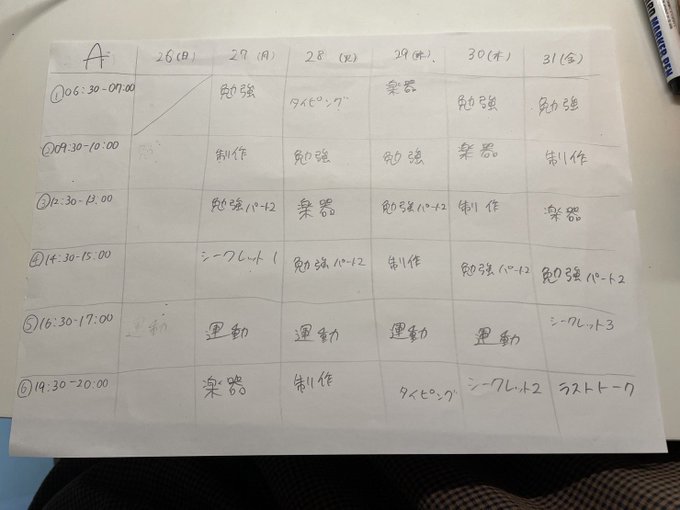 A 26(日) 27(月) 28(火) 29(水) 30(木) 31(金)
①06:30-07:00 勉強 タイピング 楽器 勉強 勉強
②09:30-10:00 制作 勉強 勉強 楽器 制作
③12:30-13:00 勉強パート2 楽器 勉強パート2 制作 楽器
④14:30-15:00 シークレット1 勉強パート2 制作 勉強パート2 勉強パート2
⑤16:30-17:00 運動 運動 運動 運動 運動 シークレット3
⑥19:30-20:00 楽器 制作 タイピング シークレット2 ラストトーク
MARKER PEN